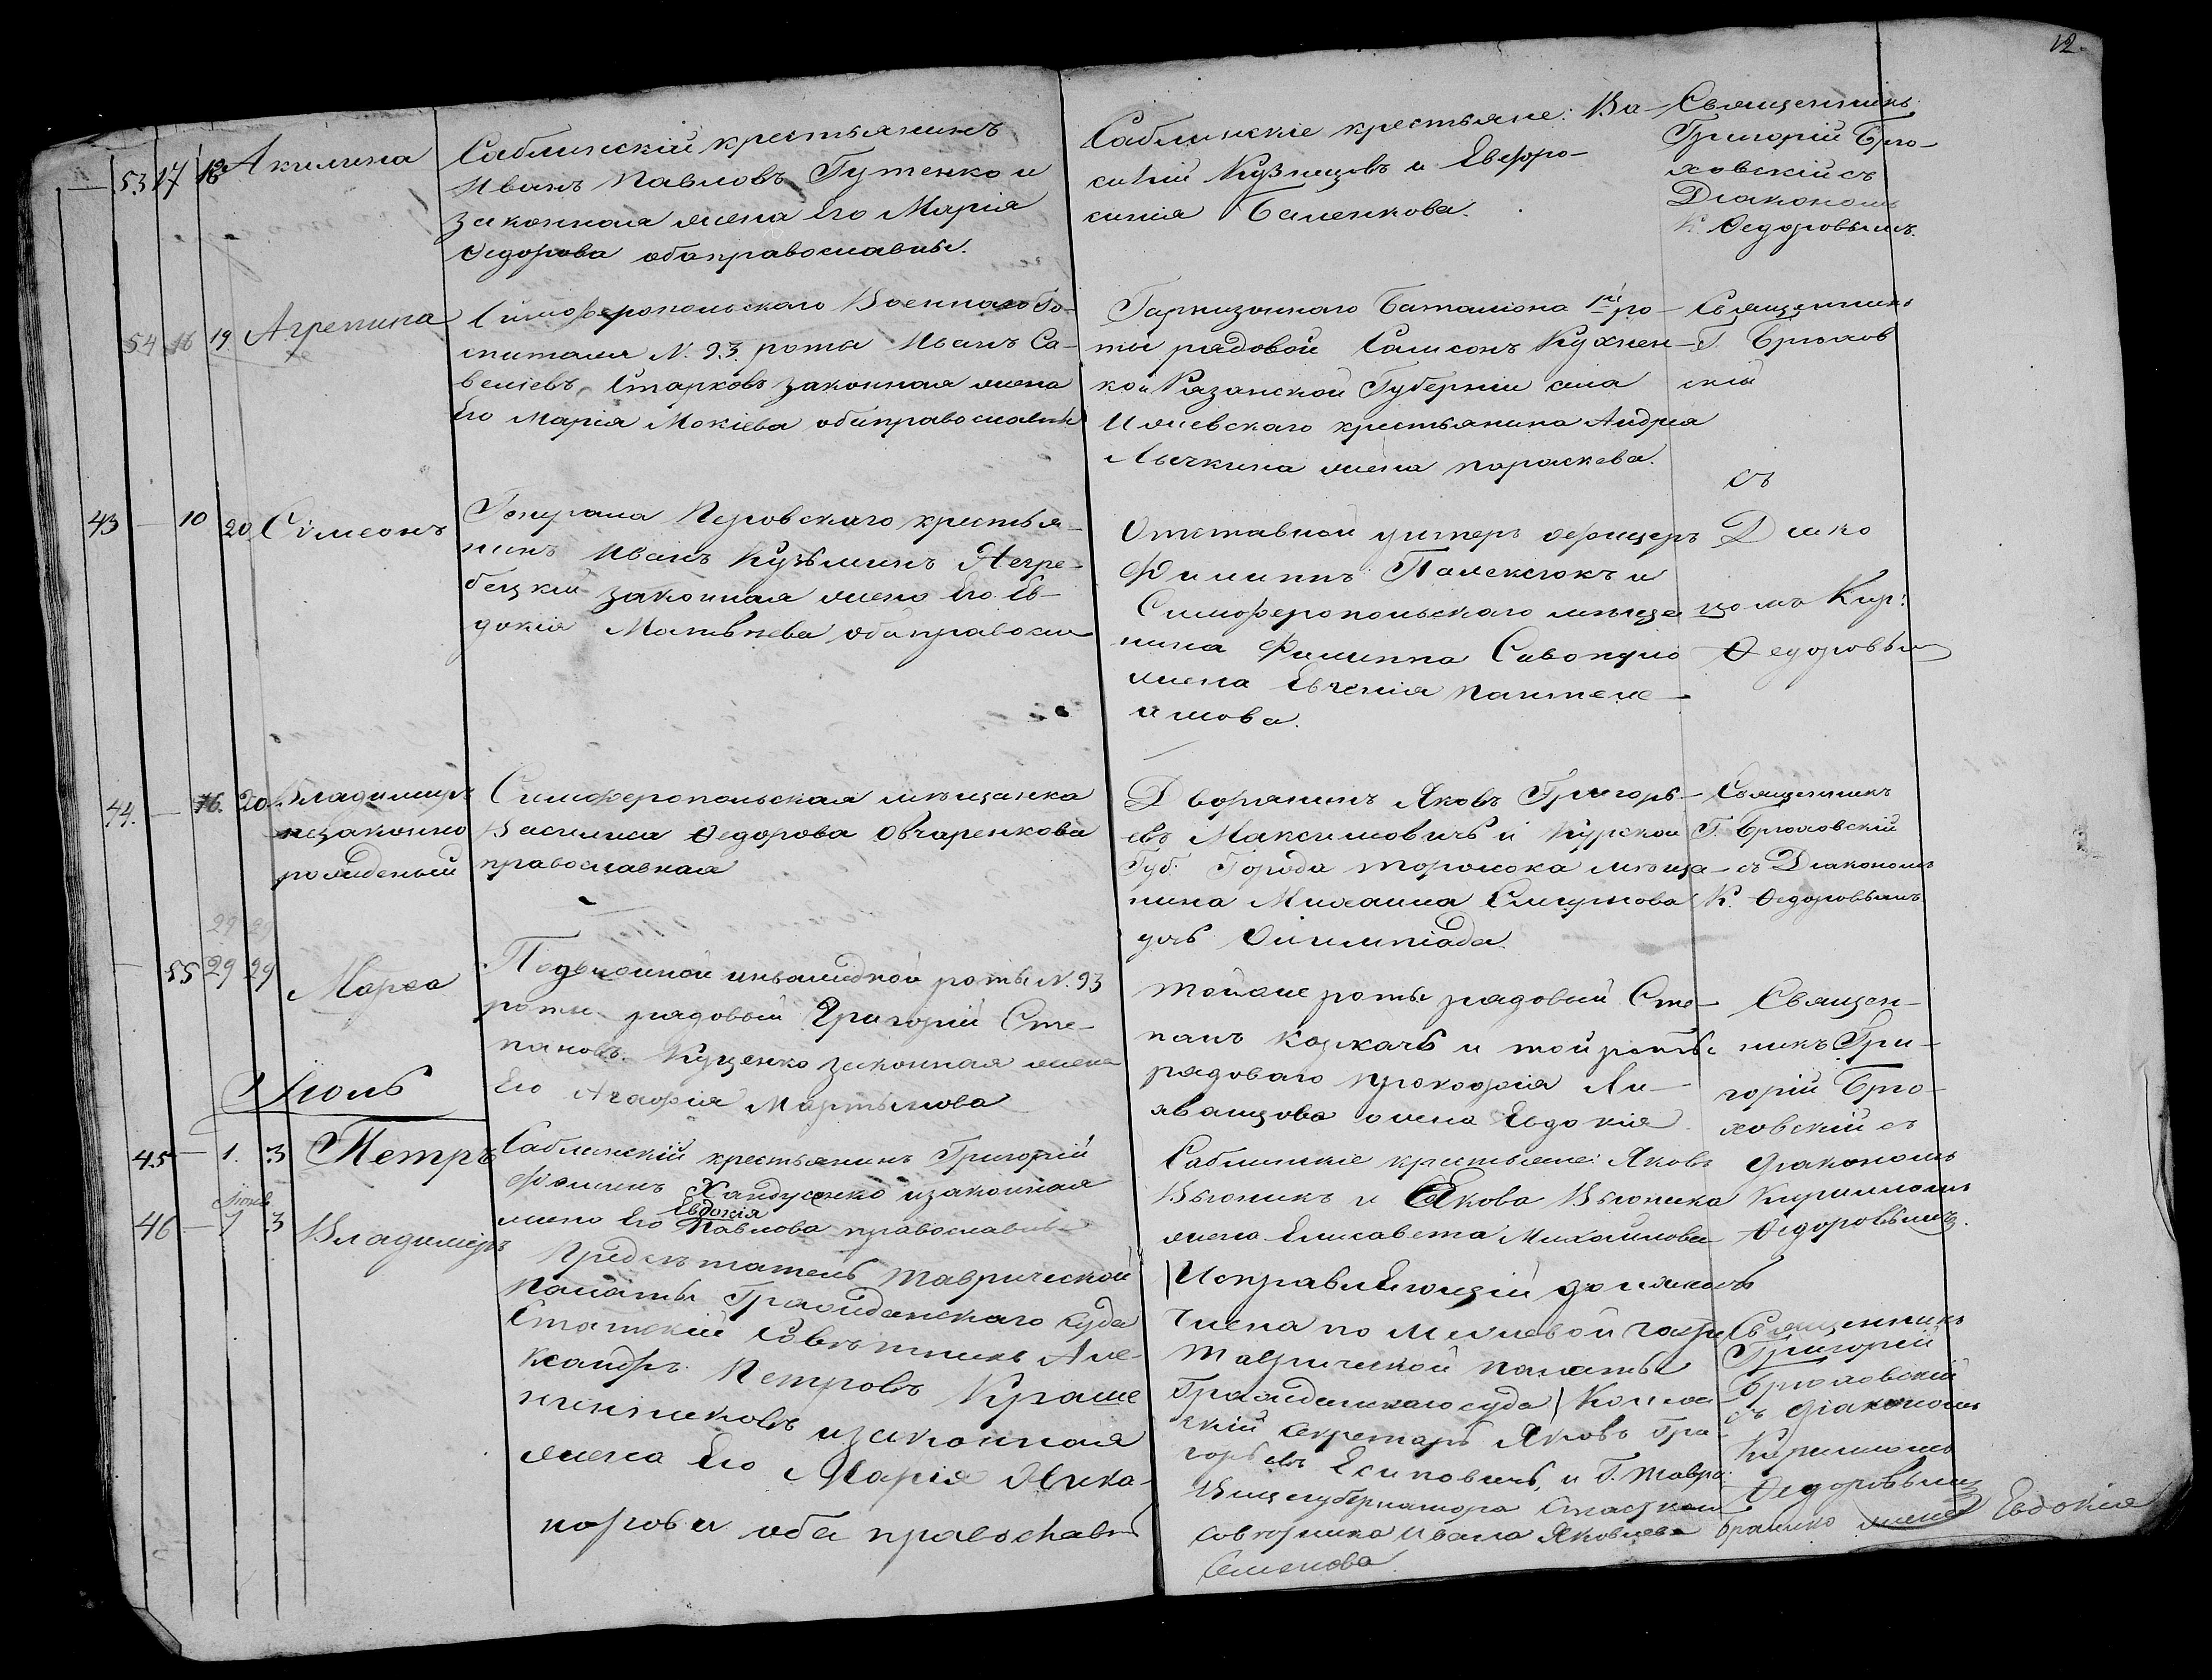 12.
— 53 17 18 Акилина
Саблинскій крестьянинъ
Иванъ Павловъ Гутенко и
законная жена Его Марія
Ѳедорова оба православные.
Саблинскіе крестьяне: Ва-
силій Кузнецовъ и Евфро-
синія Баленкова.
Священникъ
Григорій Брю-
ховскій съ
Діакономъ
К. Ѳедоровымъ.
54 16 19 Агрепина
Симферопольскаго Военнаго Го-
спиталя N. 93 рота Иванъ Са-
веліевъ Старковъ законная жена
Его Марія Мокіева оба православные
Гарнизоннаго Баталіона 1й ро-
ты рядовой Самсонъ Кухнен-
ко и Рязанской Губерніи села
Ижевскаго крестьянина Андрея
Лычкина жена Параскева.
Священникъ
Г. Брюхов
скій
съ
43 — 10 20 Симеонъ
Генерала Перовскаго крестья-
нинъ Иванъ Кузьминъ Негре-
бецкій законная жена Его Ев-
докія Матвѣева оба правосла
Отставной унтеръ офицеръ
Филиппъ Палексюкъ и
Симферопольскаго мѣща
нина Филиппа
жена Евгенія Пантеле-
имова.
Діако
номъ Кир:
Ѳедоровым
44. — 16. 20 Владимиръ
незаконно
рожденный
Симферопольская мѣщанка
Василиса Ѳедорова Овчаренкова
православная
Дворянинъ Яковъ Григорь-
евъ Максимовичъ и Курской
Губ. Города мѣща-
нина Михаила Смирнова
дочь Олимпіада.
Священникъ
Г. Брюховскій
съ Діакономъ
К. Ѳедоровымъ
29 29
— 55 29 29 Марѳа
Подвижной инвалидной роты N. 93
роты рядовый Григорій Сте-
пановъ Куценко законная жена
Его Агафія Мартынова
Тойже роты рядовый Сте-
панъ Коркачъ и той роты
рядоваго Прокофія Ля-
жена Евдокія
Священ-
никъ Гри-
горій Брю-
ховскій съ
Іюль
45 — 1. 3 Петръ
Саблинскій крестьянинъ Григорій
Фоминъ Хандусенко и законная
Евдокія
жена Его Павлова православные
Саблинскіе крестьяне: Яковъ
Вьюникъ и Якова Вьюника
жена Елисавета Михайлова
діакономъ
Кирилломъ
Ѳедоровымъ.
Іюнь
46 — 7 3 Владимиръ
Предсѣтатель Таврической
Палаты Гражданскаго Суда
Статскій Совѣтникъ Але-
ксандръ Петровъ Краше
нинниковъ и законная
жена Его Марія Ника-
норова оба православны
Исправляющій должность
Члена по Межевой части
Таврической Палаты
Гражданскаго суда Коллеж
скій Секретарь Яковъ Гри-
горьевъ Есиповичъ, и Г. Тавр:
Вицегубернатора Статскаго
Совѣтника Ивана Яковлева Браилко жена Евдокія
Семенова.
Священникъ
Григорій
Брюховскій
съ діакономъ
Кирилломъ
Ѳедоровымъ